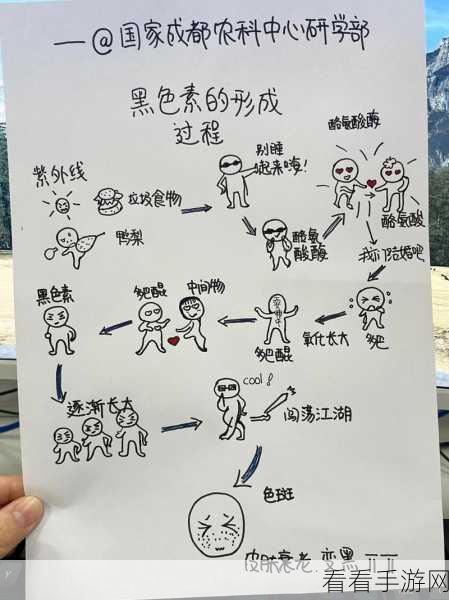 —@国家成都农科中心研学部
黑色素的形成
过程
紫外线
垃圾食物
鸭梨
别睡
起来嗨!
酪氨酸酶
酪氨
酸酶
酪氨酸
我们结婚吧
多巴
氧化长大
多巴醌
中间物
多巴醌
黑色素
逐渐长大
cool!
闯荡江湖
色斑
皮肤衰老.变黑 TT TT
看看手游网